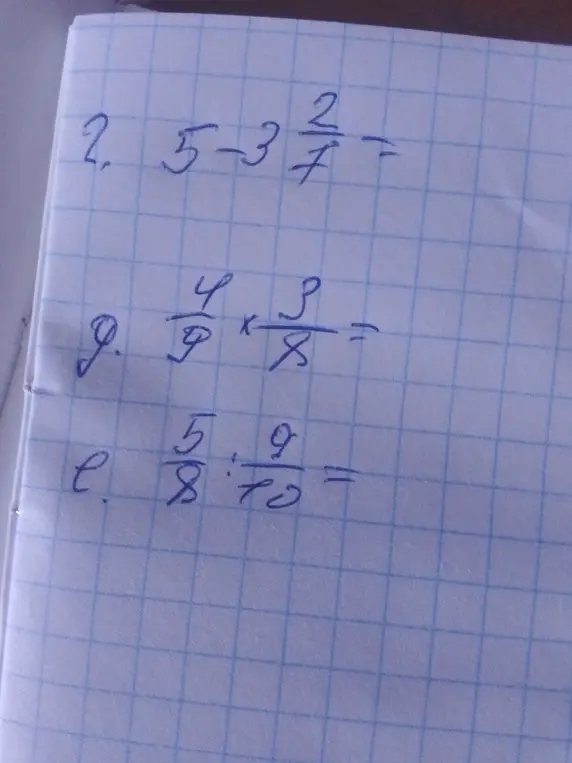 г. 5 - 3 2/7 =
д. 4/9 × 3/8 =
е. 5/8 : 9/10 =